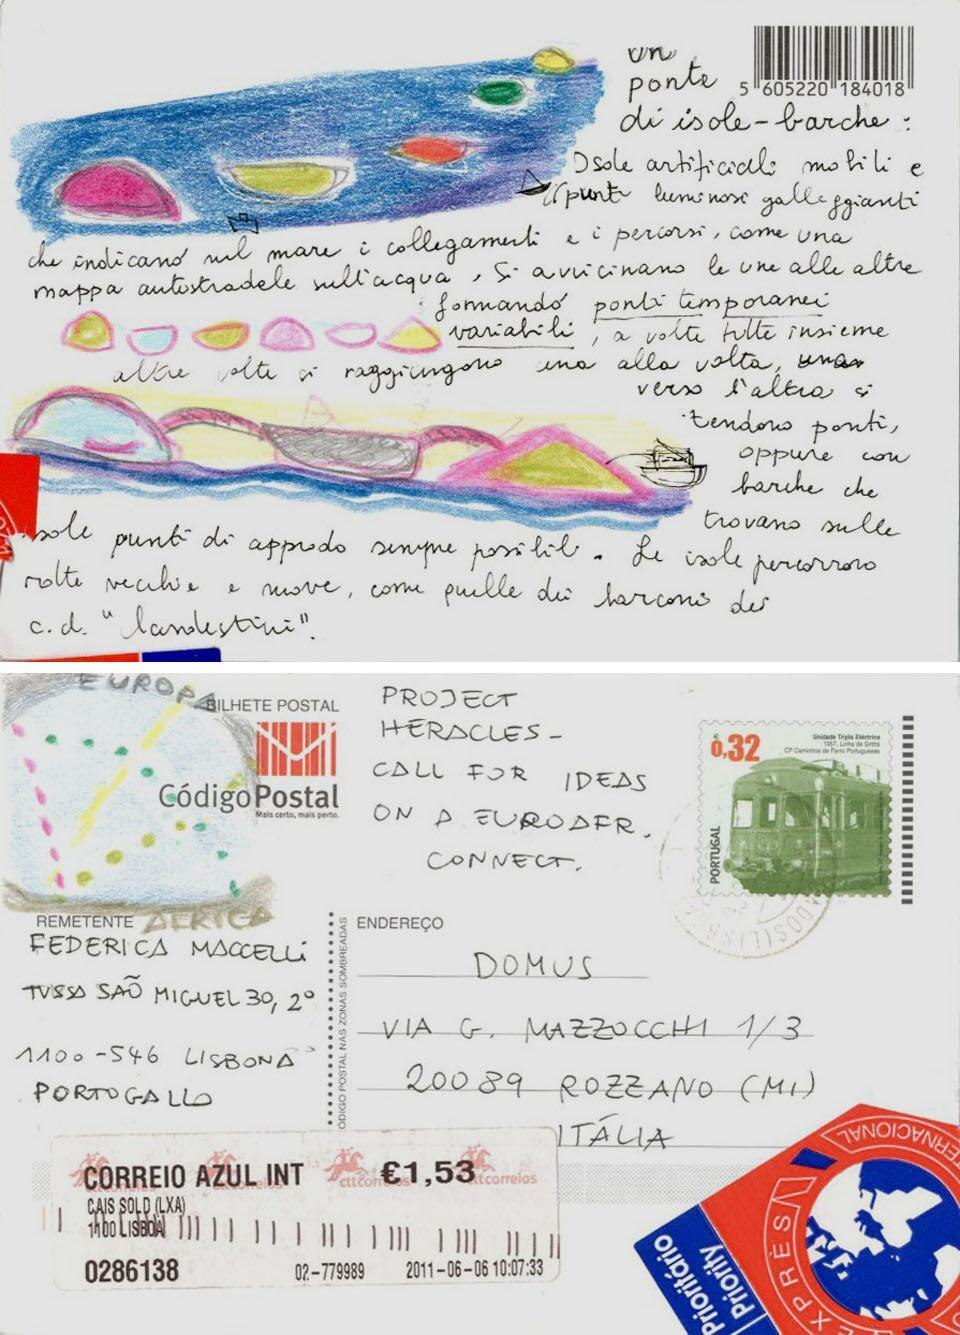 un
ponte
di isole-barche:
5 605220 184018
Isole artificiali mobili e
punti luminosi galleggianti
che indicano nel mare i collegamenti e i percorsi, come una
mappa autostradele sull'acqua, Si avvicinano le une alle altre
formando ponti temporanei
variabili, a volte tutte insieme
altre volte si raggiungono una alla volta, una
verso l'altra si
tendono ponti,
oppure con
barche che
trovano sulle
isole punti di approdo sempre possibili. Le isole percorrono
rotte vecchie e nuove, come quelle dei barconi dei
c.d. "clandestini".
EUROPA
BILHETE POSTAL
CódigoPostal
Mais certo, mais perto.
AFRICA
PROJECT
HERACLES-
CALL FOR IDEAS
ON A EUROAFR.
CONNECT.
€0,32
Unidade Tripla Eléctrica
1957, Linha de Sintra
CP Caminhos de Ferro Portugueses
PORTUGAL
REMETENTE
FEDERICA MACCELLI
TVSSA SAÕ MIGUEL 30, 2º
1100-546 LISBONA
PORTOGALLO
CÓDIGO POSTAL NAS ZONAS SOMBREADAS
ENDEREÇO
DOMUS
VIA G. MAZZOCCHI 1/3
20089 ROZZANO (MI)
ITÁLIA
CORREIO AZUL INT €1,53
cttcorreios cttcorreios cttcorreios
CAIS SOLD (LXA)
1100 LISBOA
0286138 02-779989 2011-06-06 10:07:33
Prioritário
Priority
EXPRÈS
INTERNACIONAL